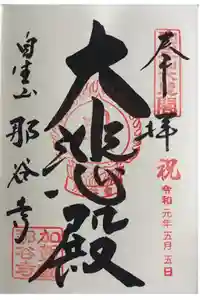 奉拝
祝
令和元年五月五日
大悲殿
自生山
那谷寺